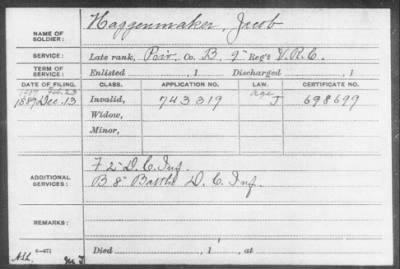 NAME OF SOLDIER: Haggenmaker, Jacob
SERVICE: Late rank, Priv, Co. B, 9" Reg't V.R.C.
TERM OF SERVICE: Enlisted , 1 Discharged , 1
DATE OF FILING. CLASS. APPLICATION NO. LAW. CERTIFICATE NO.
1887 Dec. 13 Invalid, 743319 J 698699
Widow,
Minor,
ADDITIONAL SERVICES: F 2" D.C. Inf.
B 8" Batt'l D.C. Inf.
REMARKS:
Died , 1 , at